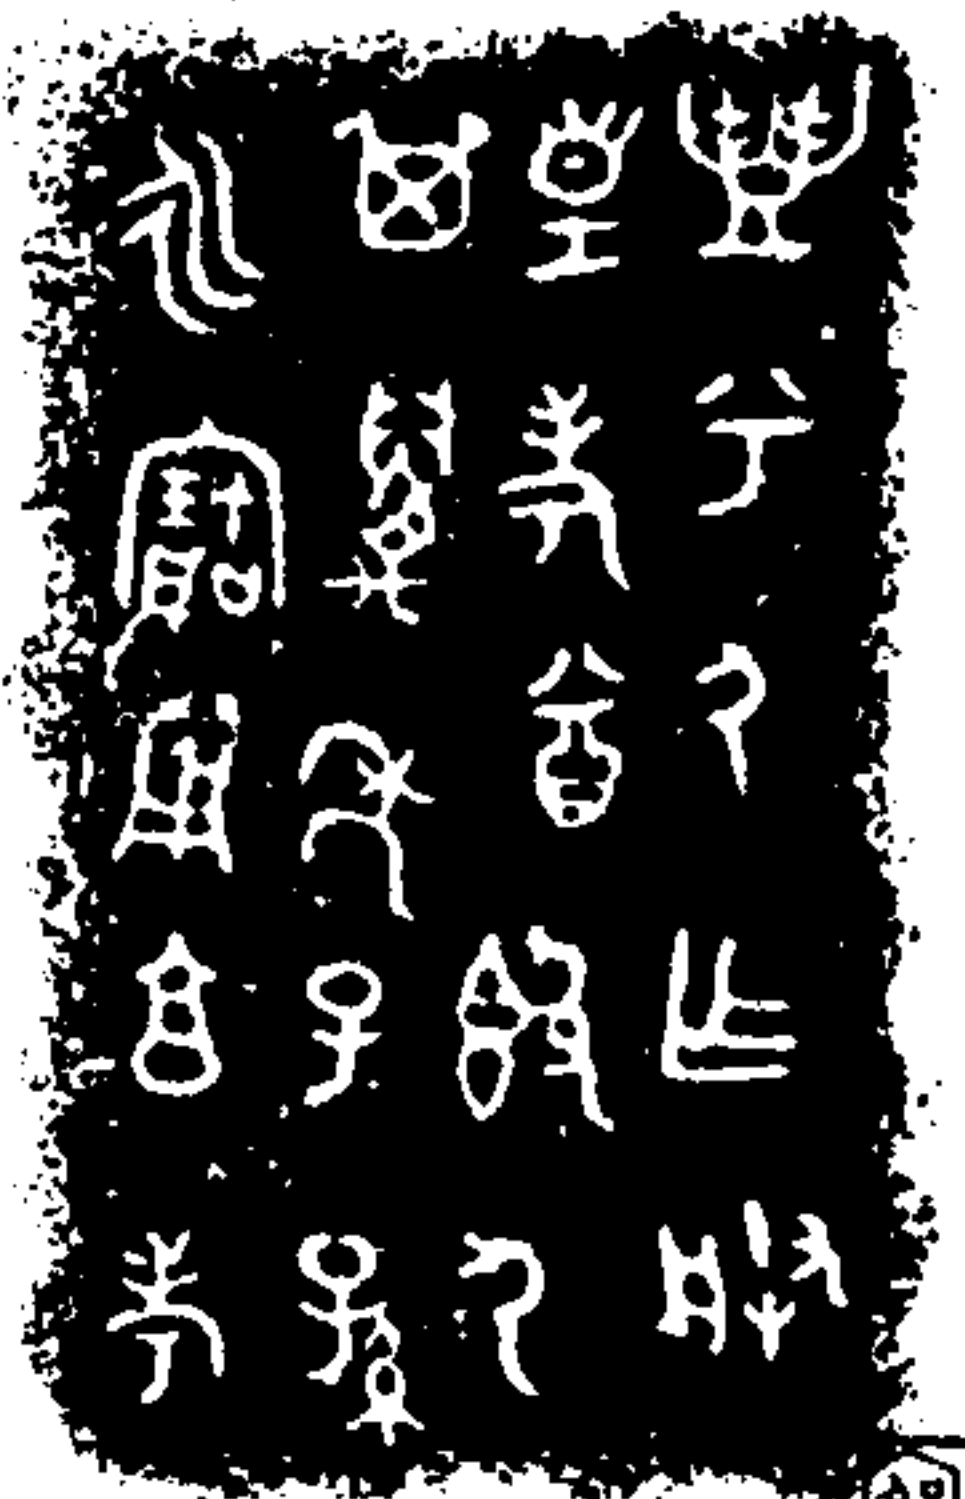 豐兮尸乍朕
皇考尊簋尸
其萬年子孫
永寶用享考